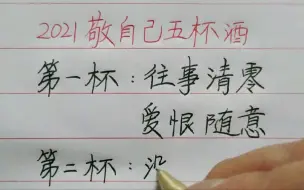 2021敬自己五杯酒
第一杯：往事清零
爱恨随意
第二杯：没